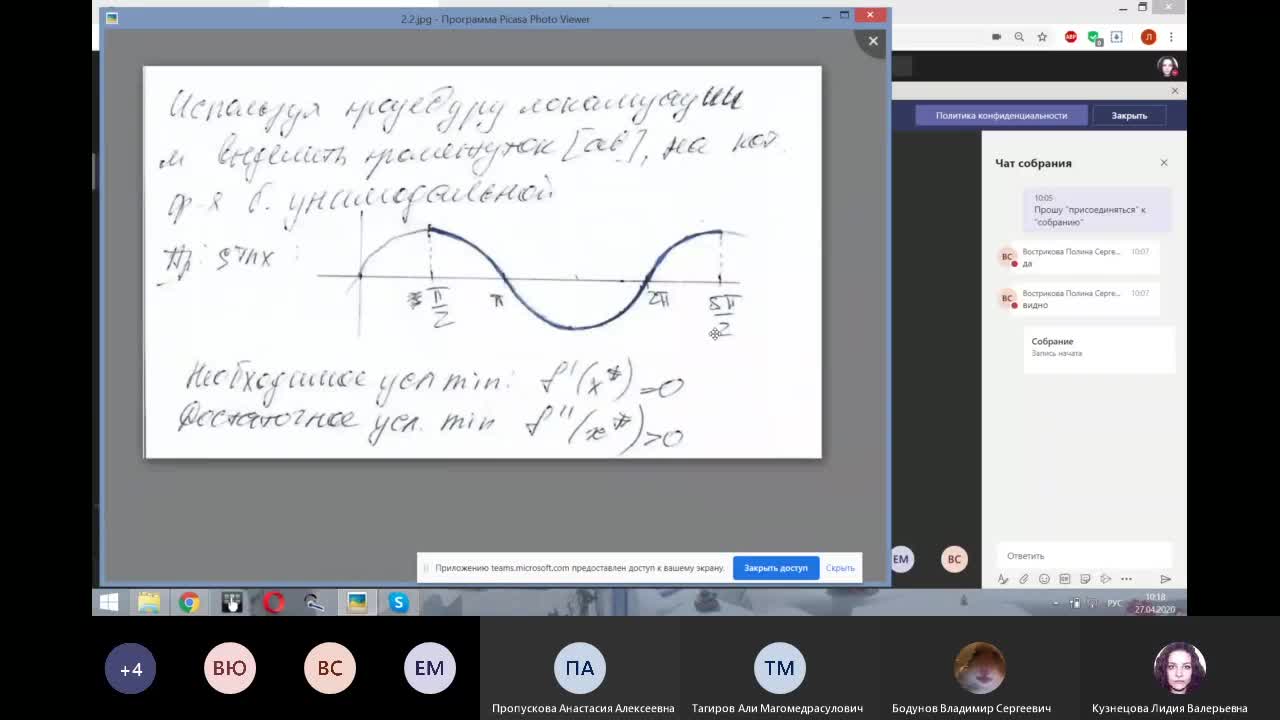 2.2.jpg - Программа Picasa Photo Viewer
Используя процедуру локализации
м выделить промежуток [ab], на кот.
ф-я б. унимодальной
Пр: sinx :
π/2 π 2π 5π/2
Необходимое усл min: f'(x*)=0
Достаточное усл. min f''(x*)>0
Приложению teams.microsoft.com предоставлен доступ к вашему экрану. Закрыть доступ Скрыть
ABP
Л
Политика конфиденциальности Закрыть
Чат собрания
10:05
Прошу "присоединяться" к
"собранию"
ВС Вострикова Полина Серге... 10:07
да
ВС Вострикова Полина Серге... 10:07
видно
Собрание
Запись начата
ЕМ ВС
Ответить
РУС 10:18
27.04.2020
+4 ВЮ ВС ЕМ ПА ТМ
Пропускова Анастасия Алексеевна Тагиров Али Магомедрасулович Бодунов Владимир Сергеевич Кузнецова Лидия Валерьевна